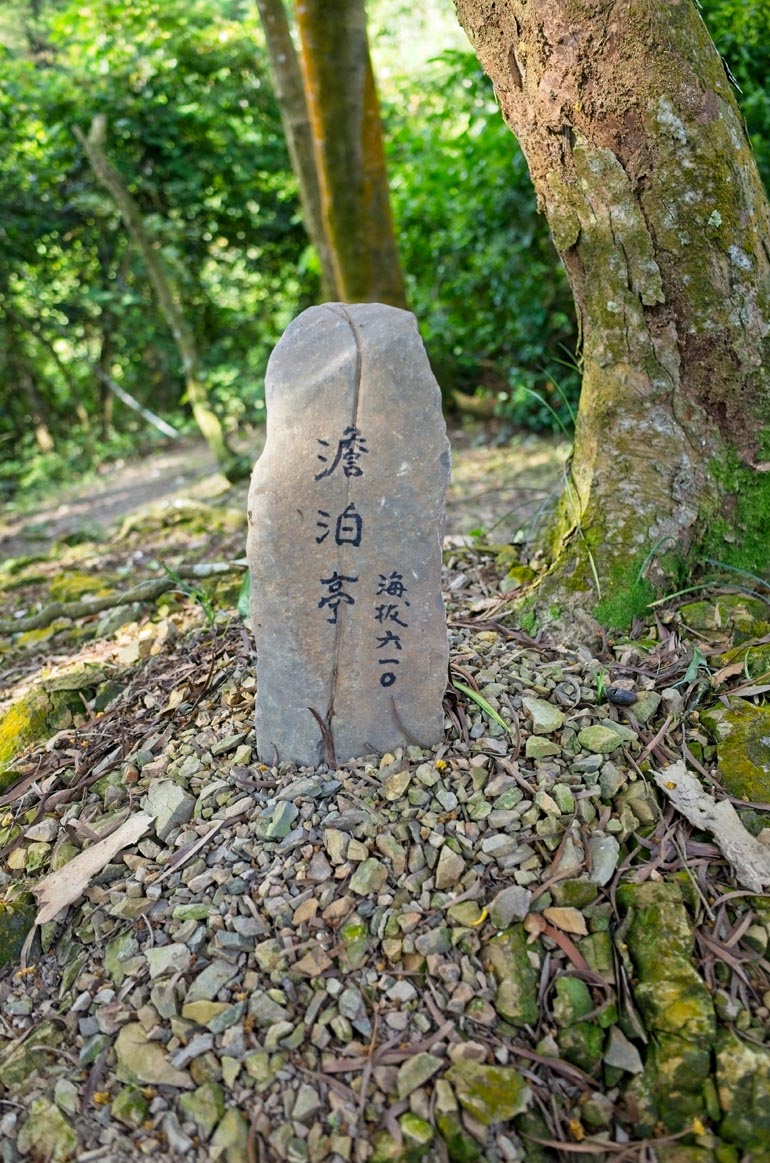 澹泊亭
海拔六一〇